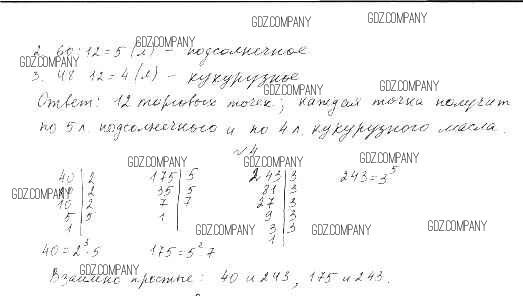 GDZ.COMPANY GDZ.COMPANY
GDZ.COMPANY
2. 60:12=5 (л) – подсолнечное
GDZ.COMPANY
3. 48:12=4 (л) – кукурузное
GDZ.COMPANY GDZ.COMPANY
Ответ: 12 торговых точек; каждая точка получит
по 5 л. подсолнечного и по 4 л. кукурузного масла.
№4
GDZ.COMPANY GDZ.COMPANY GDZ.COMPANY
40 | 2 175 | 5 243 | 3 243=3⁵
20 | 2 35 | 5 81 | 3
GDZ.COMPANY GDZ.COMPANY
10 | 2 7 | 7 27 | 3
5 | 5 1 9 | 3
1 3 | 3
GDZ.COMPANY GDZ.COMPANY GDZ.COMPANY
1
40=2³·5 175=5²·7
GDZ.COMPANY
Взаимно простые: 40 и 243, 175 и 243.